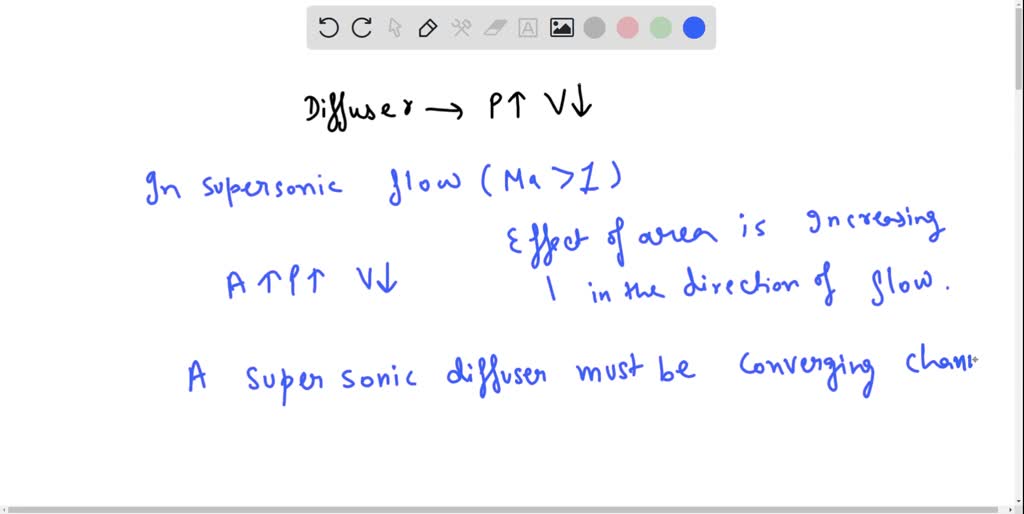 Diffuser → P↑ V↓
In supersonic flow (Ma > 1)
Effect of area is increasing
A↑ P↑ V↓
in the direction of flow.
A super sonic diffuser must be converging chann